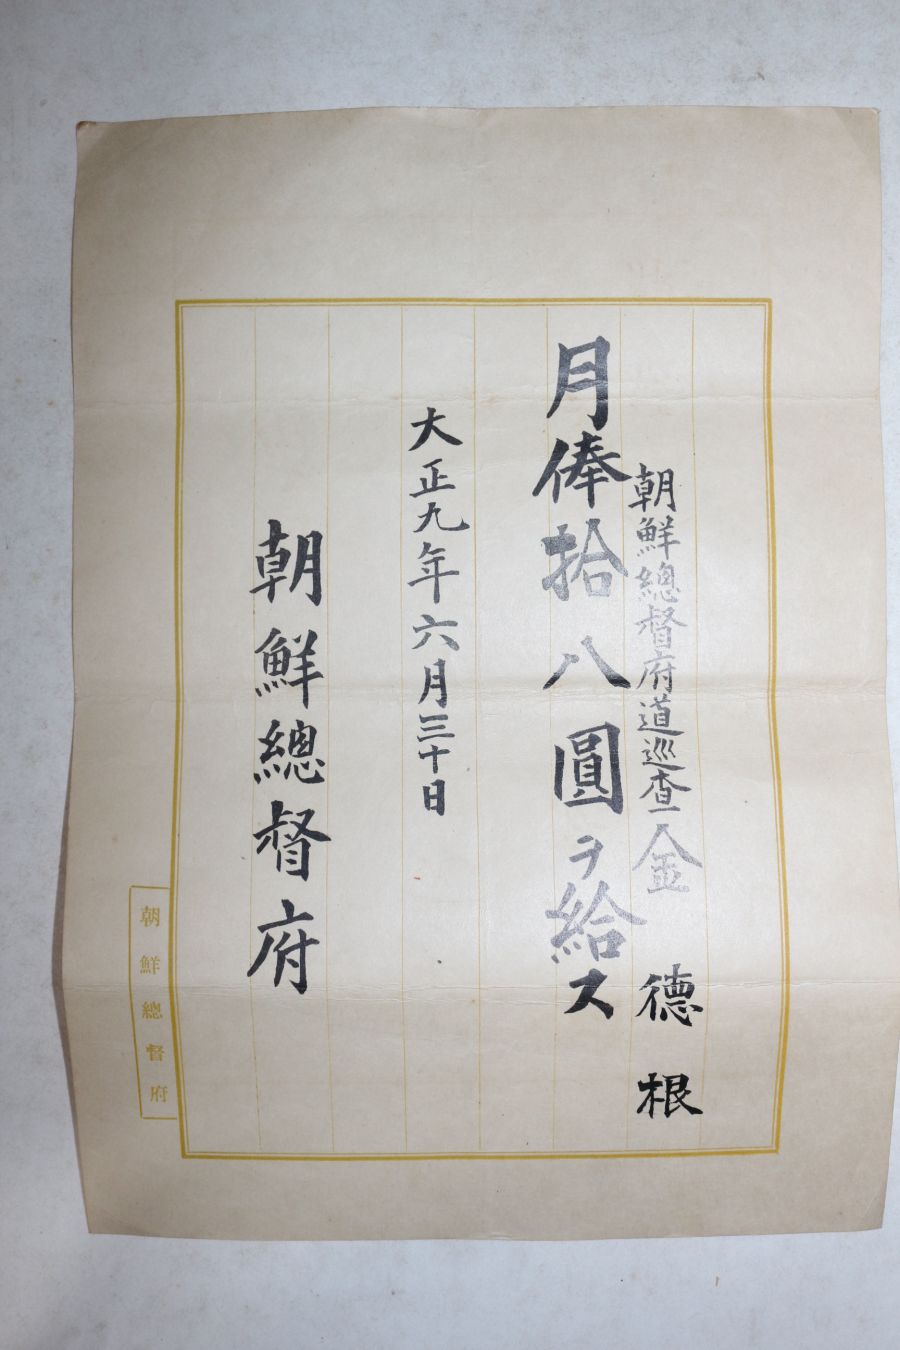 朝鮮總督府道巡查 金德根
月俸拾八圓ヲ給ス
大正九年六月三十日
朝鮮總督府
朝鮮總督府